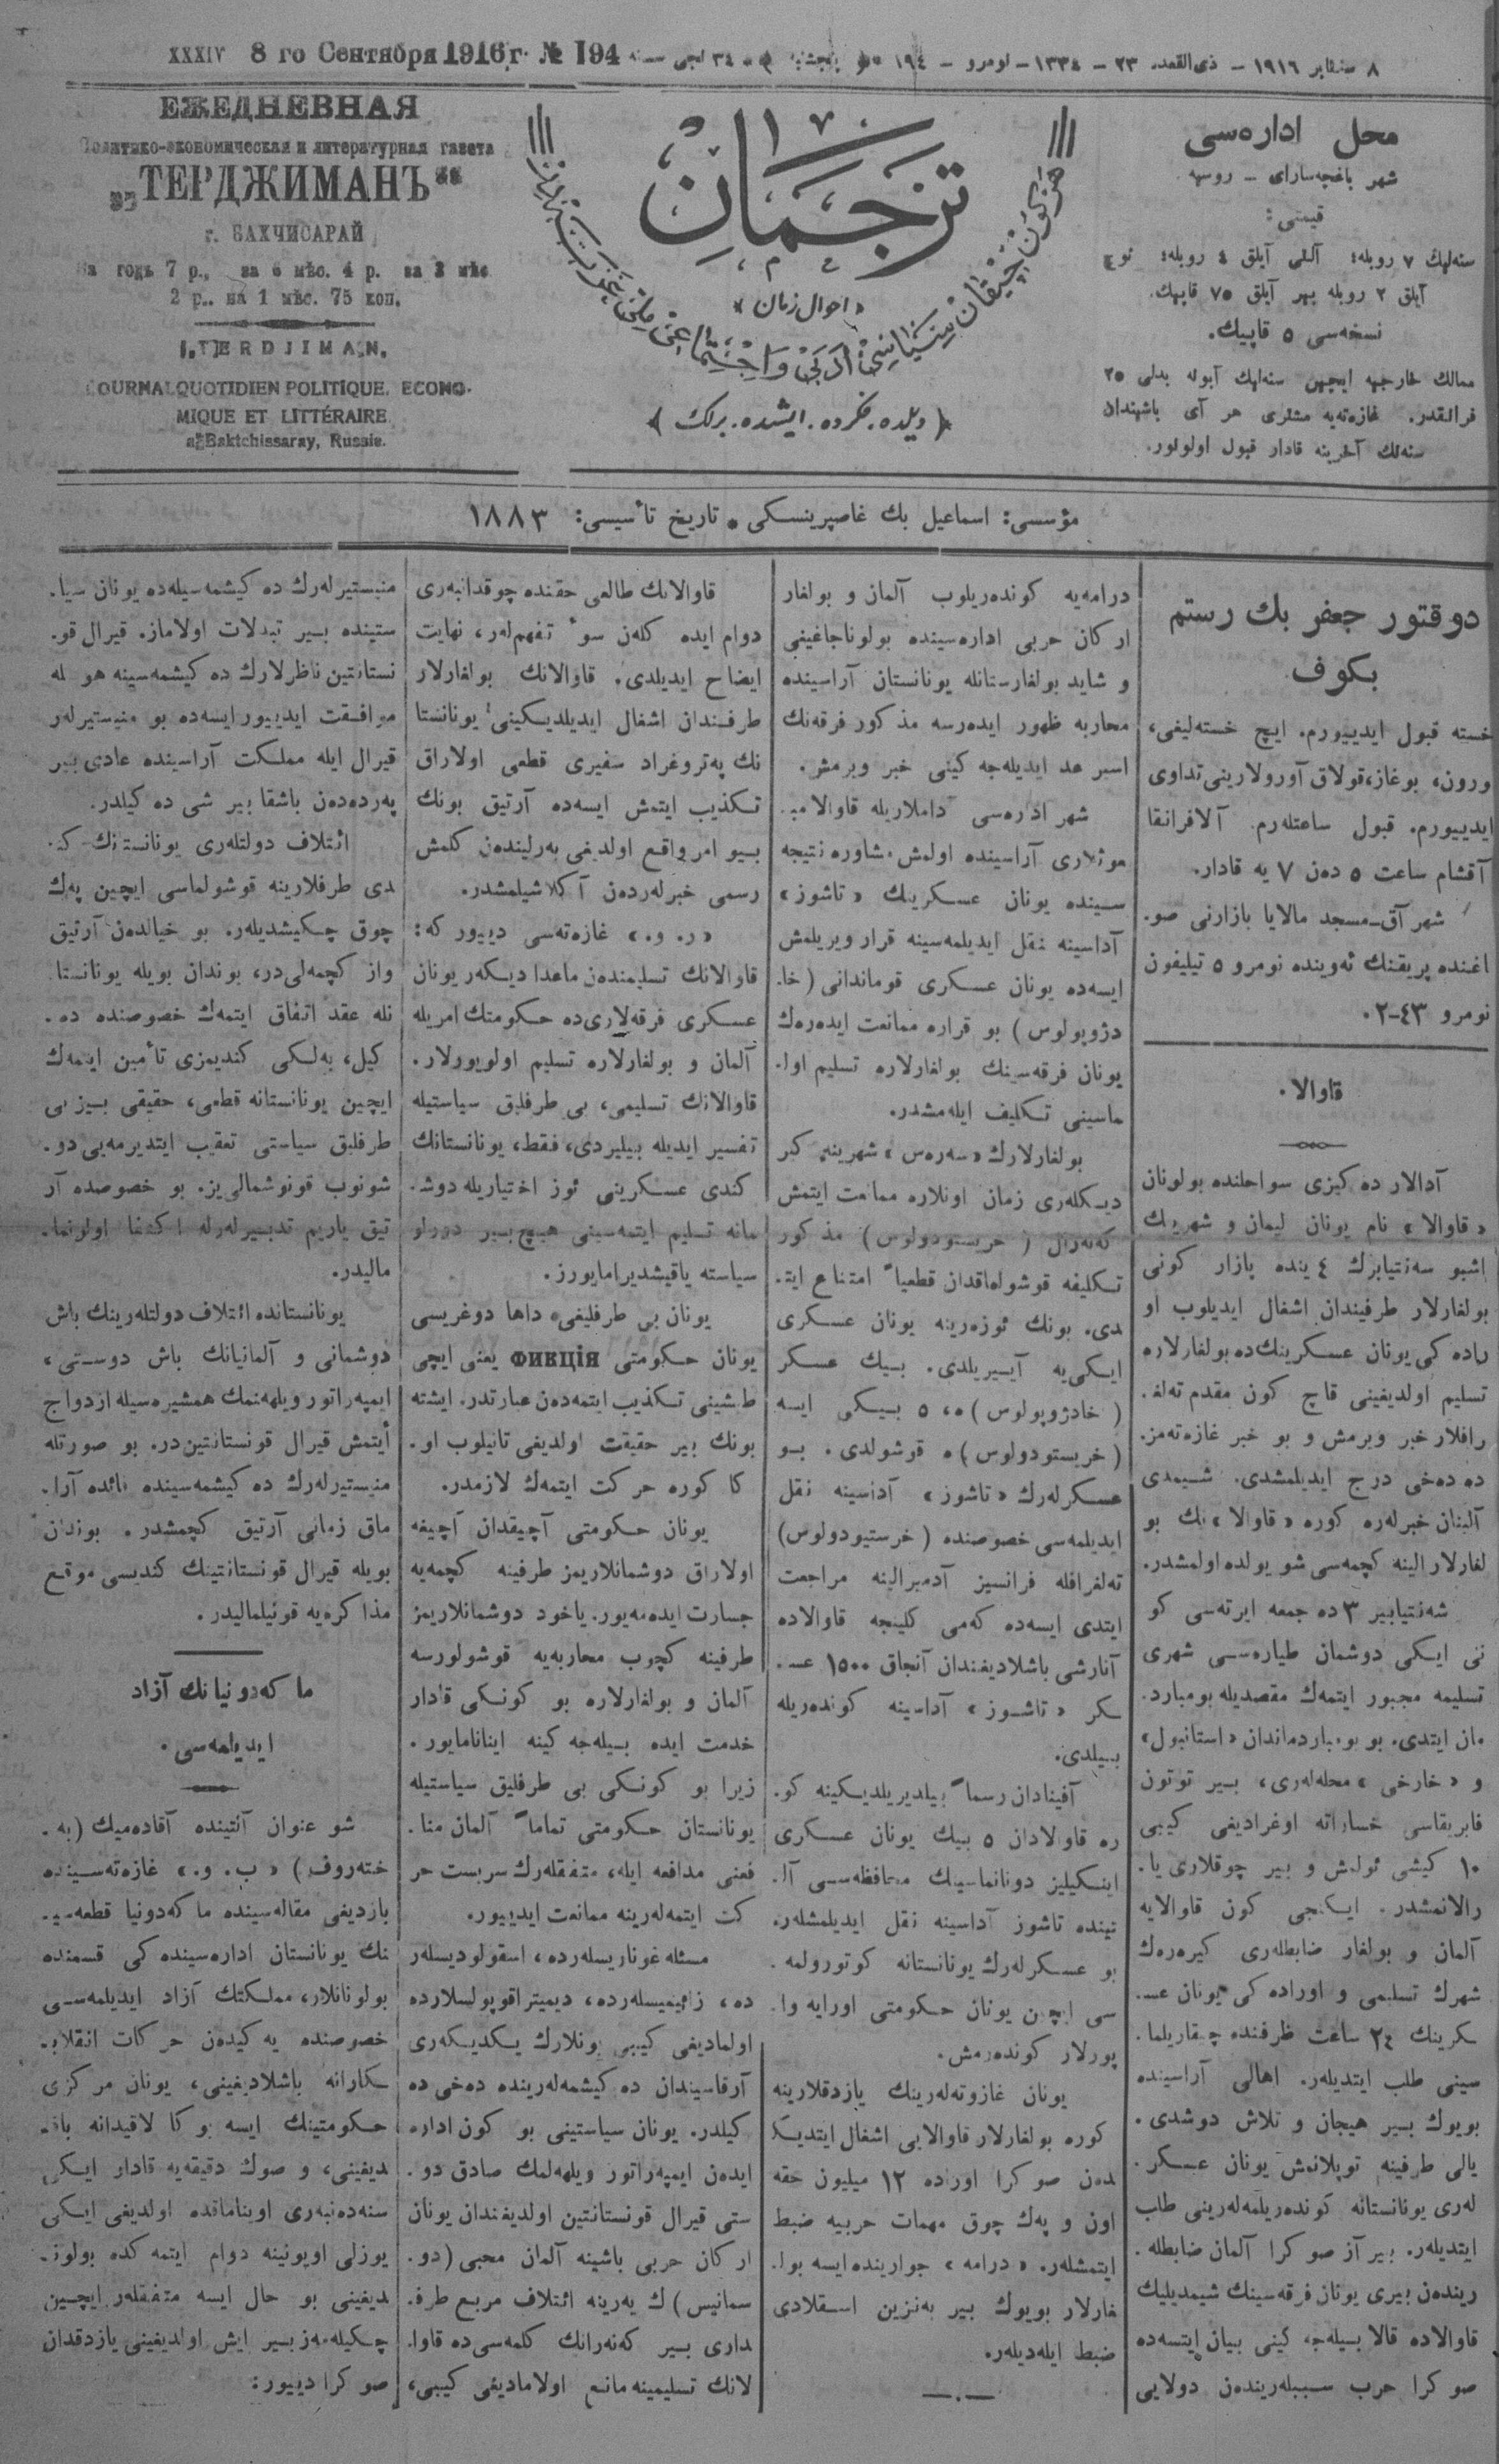 XXXIV 8 го Сентября 1916 г. № 194
٨ سنتابر ١٩١٦ — ذی‌القعده ٢٣ — ١٣٣٤ — نومرو — ١٩٤ پنجشنبه ٣٤ نجی سنه
ЕЖЕДНЕВНАЯ
Политико-экономическая и литературная газета
„ТЕРДЖИМАНЪ“
г. БАХЧИСАРАЙ
На годъ 7 р., за 6 мѣс. 4 р. за 3 мѣс.
2 р.. на 1 мѣс. 75 коп.
„TERDJIMAN„
JOURNAL QUOTIDIEN POLITIQUE, ECONO-
MIQUE ET LITTÉRAIRE
a Baktchissaray, Russie.
ترجمان
« احوال زمان »
هر كون چیقان سیاسی، ادبی و اجتماعی ملی غزته
﴿ دیلده. فكرده. ایشده. برلك ﴾
محل اداره‌سی
شهر باغچه‌سارای — روسیه
قیمتی:
سنه‌لیك ٧ روبله؛ آلتی آیلق ٤ روبله؛ اوچ
آیلق ٢ روبله بیر آیلق ٧٥ قاپیك.
نسخه‌سی ٥ قاپیك.
ممالك خارجیه ایچین سنه‌لیك آبونه بدلی ٢٥
فرانقدر. غازه‌ته‌یه مشتری هر آی باشیندان
سنه‌نك آخرینه قادار قبول اولونور.
مؤسسی: اسماعیل بك غاصپرینسكی • تاریخ تأسیسی: ١٨٨٣
دوقتور جعفر بك رستم
بكوف
خسته قبول ایدییورم. ایچ خسته‌لیغی،
بورون، بوغاز، قولاق آورولارینی تداوی
ایدییورم. قبول ساعتله‌رم آلافرانقا
آقشام ساعت ٥ دەن ٧ یه قادار.
شهر آق-مسجد مالایا بازارنی صو-
اغنده پریقنك ئه‌وینده نومرو ٥ تیلیفون
نومرو ٤٣-٢.
قاوالا.
آدالار ده‌كیزی سواحلنده بولونان
« قاوالا » نام یونان لیمان و شهرینك
اشبو سه‌نتیابرك ٤ ینده بازار كونی
بولغارلار طرفیندان اشغال ایدیلوب او
راده كی یونان عسكرینك ده بولغارلاره
تسلیم اولدیغینی قاچ كون مقدم ته‌لغ-
رافلار خبر ویرمش و بو خبر غازه‌ته‌مز-
ده ده‌خی درج ایدیلمشدی. شیمدی
آلینان خبرله‌ره كوره « قاوالا » نك بو
لغارلار الینه كچمه‌سی شو یولده اولمشدر.
سه‌نتیابیر ٣ ده جمعه ایرته‌سی كو
نی ایكی دوشمان طیاره‌سی شهری
تسلیمه مجبور ایتمه‌ك مقصدیله بومبارد-
مان ایتدی. بو بومباردماندان « استانبول »
و « خارخی » محله‌له‌ری، بیر توتون
فابریقاسی خساراته اوغرادیغی كیبی
١٠ كیشی ئولمش و بیر چوقلاری یا-
رالانمشدر. ایكنجی كون قاوالایه
آلمان و بولغار ضابطله‌ری كیره‌ره‌ك
شهرك تسلیمی و اوراده كی یونان عسـ
كرینك ٢٤ ساعت ظرفنده چیقاریلما-
سینی طلب ایتدیله‌ر. اهالی آراسینده
بویوك بیر هیجان و تلاش دوشدی.
یالی طرفینه توپلانمش یونان عسكر-
له‌ری یونانستانه كونده‌ریلمه‌له‌رینی طلب
ایتدیله‌ر. بیر آز صوكرا آلمان ضابطله-
رینده‌ن بیری یونان فرقه‌سینك شیمدیلیك
قاوالاده قالا بیله‌جه كینی بیان ایتسه‌ده
صوكرا حرب سببله‌رینده‌ن دولایی
درامه‌یه كونده‌ریلوب آلمان و بولغار
اركان حربی اداره‌سینده بولوناجاغینی
و شاید بولغارستانله یونانستان آراسینده
محاربه ظهور ایده‌رسه مذكور فرقه‌نك
اسیر عد ایدیله‌جه كینی خبر ویرمش.
شهر اداره‌سی داملاریله قاوالا مبـ
عوثلاری آراسینده اولمش مشاوره نتیجه
سینده یونان عسكرینك « تاشوز »
آداسینه نقل ایدیلمه‌سینه قرار ویریلمش
ایسه‌ده یونان عسكری قوماندانی (خا-
دژوپولوس) بو قراره ممانعت ایده‌ره‌ك
یونان فرقه‌سینك بولغارلاره تسلیم اولـ
ماسینی تكلیف ایله‌مشدر.
بولغارلارك « سه‌ره‌س » شهرینه كیر
دیكله‌ری زمان اونلاره ممانعت ایتمش
كه‌نه‌رال ( خریستودولوس ) مذكور
تكلیفه قوشولماقدان قطعیاً امتناع ایتـ
دی. بونك ئوزه‌رینه یونان عسكری
ایكی‌یه آیریلدی. بیك عسكر
( خادژوپولوس )ه، ٥ بیكی ایسه
( خریستودولوس )ه قوشولدی. بو
عسكرله‌رك « تاشوز » آداسینه نقل
ایدیلمه‌سی خصوصنده ( خرستیودولوس )
ته‌لغرافله فرانسیز آدمیرالینه مراجعت
ایتدی ایسه‌ده كه‌می كلینجه قاوالاده
آنارشی باشلادیغندان آنجاق ١٥٠٠ عسـ
كر « تاشوز » آداسینه كونده‌ریله
بیلدی.
آفینادان رسماً بیلدیریلدیكینه كو-
ره قاوالادان ٥ بیك یونان عسكری
اینكیلیز دونانماسینك محافظه‌سی آلـ
تینده تاشوز آداسینه نقل ایدیلمشله‌ر.
بو عسكرله‌رك یونانستانه كوتورولمه-
سی ایچون یونان حكومتی اورایه وا-
پورلار كونده‌رمش.
یونان غازه‌ته‌له‌رینك یازدقلارینه
كوره بولغارلار قاوالایی اشغال ایتدیكـ
ده‌ن صوكرا اوراده ١٢ میلیون حقه
اون و په‌ك چوق مهمات حربیه ضبط
ایتمشله‌ر. « درامه » جوارینده ایسه بولـ
غارلار بویوك بیر به‌نزین اسقلادی
ضبط ایله‌دیله‌ر.
قاوالانك طالعی حقنده چوقدانبه‌ری
دوام ایده كلەن سوء تفهم‌لەر، نهایت
ایضاح ایدیلدی. قاوالانك بولغارلار
طرفندان اشغال ایدیلدیكینی یونانستا
نك په‌تروغراد سفیری قطعی اولاراق
تكذیب ایتمش ایسه‌ده آرتیق بونك
بیر امر واقع اولدیغی به‌رلینده‌ن كلمش
رسمی خبرله‌رده‌ن آكلاشیلمشدر.
« ر. و. » غازه‌ته‌سی دییور كه:
قاوالانك تسلیمنده‌ن ماعدا دیكه‌ر یونان
عسكری فرقه‌لاری‌ده حكومتك امریله
آلمان و بولغارلاره تسلیم اولویورلار.
قاوالانك تسلیمی، بی طرفلیق سیاستیله
تفسیر ایدیله بیلیردی، فقط، یونانستانك
كندی عسكرینی ئوز اختیاریله دوشـ
مانه تسلیم ایتمه‌سینی هیچ بیر دورلو
سیاسته یاقیشدیرامایورز.
یونان بی طرفلیغی، داها دوغریسی
یونان حكومتی ФИКЦІЯ یعنی ایچی
طشینی تكذیب ایتمه‌ده‌ن عبارتدر. ایشته
بونك بیر حقیقت اولدیغی تانیلوب او-
كا كوره حركت ایتمه‌ك لازمدر.
یونان حكومتی آچیقدان آچیغه
اولاراق دوشمانلاریمز طرفینه كچمه‌یه
جسارت ایده‌مه‌یور. یاخود دوشمانلاریمز
طرفینه كچوب محاربه‌یه قوشولورسه
آلمان و بولغارلاره بو كونكی قادار
خدمت ایده بیله‌جه كینه اینانامایور.
زیرا بو كونكی بی طرفلیق سیاستیله
یونانستان حكومتی تماماً آلمان منا-
فعنی مدافعه ایله، متفقله‌رك سربست حر
كت ایتمه‌له‌رینه ممانعت ایدییور.
مسئله غوناریسله‌رده، اسقولودیسله‌ر
ده، زائیمیسله‌رده، دیمیتراقوپولسلارده
اولمادیغی كیبی بونلارك یكدیكه‌ری
آرقاسیندان ده‌كیشمه‌له‌رینده ده‌خی ده
كیلدر. یونان سیاستینی بو كون اداره
ایده‌ن ایمپه‌راتور ویلهه‌لمك صادق دو-
ستی قیرال قونستانتین اولدیغندان یونان
اركان حربی باشینه آلمان محبی (دو-
سمانیس) ك یه‌رینه ائتلاف مربع طرفـ
داری بیر كه‌نه‌رالك كلمه‌سی ده قاوا-
لانك تسلیمینه مانع اولامادیغی كیبی،
منیستیرله‌رك ده كیشمه‌سیله‌ده یونان سیا-
ستینده بیر تبدلات اولاماز. قیرال قو-
نستانتین ناظرلارك ده كیشمه‌سینه هو له
موافقت ایدییور ایسه‌ده بو منیستیرله‌ر
قیرال ایله مملكت آراسینده عادی بیر
په‌رده‌ده‌ن باشقا بیر شی ده كیلدر.
ائتلاف دولتله‌ری یونانستانك كنـ
دی طرفلارینه قوشولماسی ایچین په‌ك
چوق چكیشدیله‌ر. بو خیالده‌ن آرتیق
واز كچمه‌لی‌در، بوندان بویله یونانستا
نله عقد اتفاق ایتمه‌ك خصوصنده ده-
كیل، به‌لكی كندیمزی تأمین ایتمه‌ك
ایچین یونانستانه قطعی، حقیقی بیر بی
طرفلیق سیاستی تعقیب ایتدیرمه‌یی دو-
شونوب قونوشمالی‌یز. بو خصوصده آر
تیق یاریم تدبیرله‌رله اكتفا اولونما-
مالیدر.
یونانستانده ائتلاف دولتله‌رینك باش
دوشمانی و آلمانیانك باش دوستی،
ایمپه‌راتور ویلهه‌لمك همشیره‌سیله ازدواج
ایتمش قیرال قونستانتین‌در. بو صورتله
منیستیرله‌رك ده كیشمه‌سینده فائده آرا-
ماق زمانی آرتیق كچمشدر. بوندان
بویله قیرال قونستانتینك كندیسی موقع
مذاكره‌یه قونیلمالیدر.
ماكه‌دونیانك آزاد
ایدیلمه‌سی.
شو عنوان آلتینده آقاده‌میك (به-
خته‌روف) « ب. و. » غازه‌ته‌سینده
یازدیغی مقاله‌سینده ماكه‌دونیا قطعه‌سیـ
نك یونانستان اداره‌سینده كی قسمنده
بولونانلار، مملكتك آزاد ایدیلمه‌سی
خصوصنده یه كیده‌ن حركات انقلابـ
كارانه باشلادیغینی، یونان مركزی
حكومتینك ایسه بوكا لاقیدانه باقـ
دیغینی، و صوك دقیقه‌یه قادار ایكی
سنه‌ده‌نبه‌ری اویناماقده اولدیغی ایكی
یوزلی اویونینه دوام ایتمه كده بولونـ
دیغینی بو حال ایسه متفقله‌ر ایچین
چكیلمه‌ز بیر ایش اولدیغینی یازدقدان
صوكرا دییور: